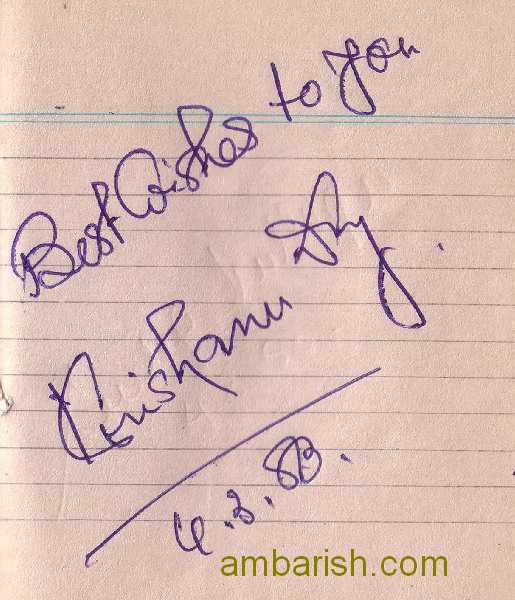 Best Wishes to you
Krishanu Dey.
4.3.83.
ambarish.com